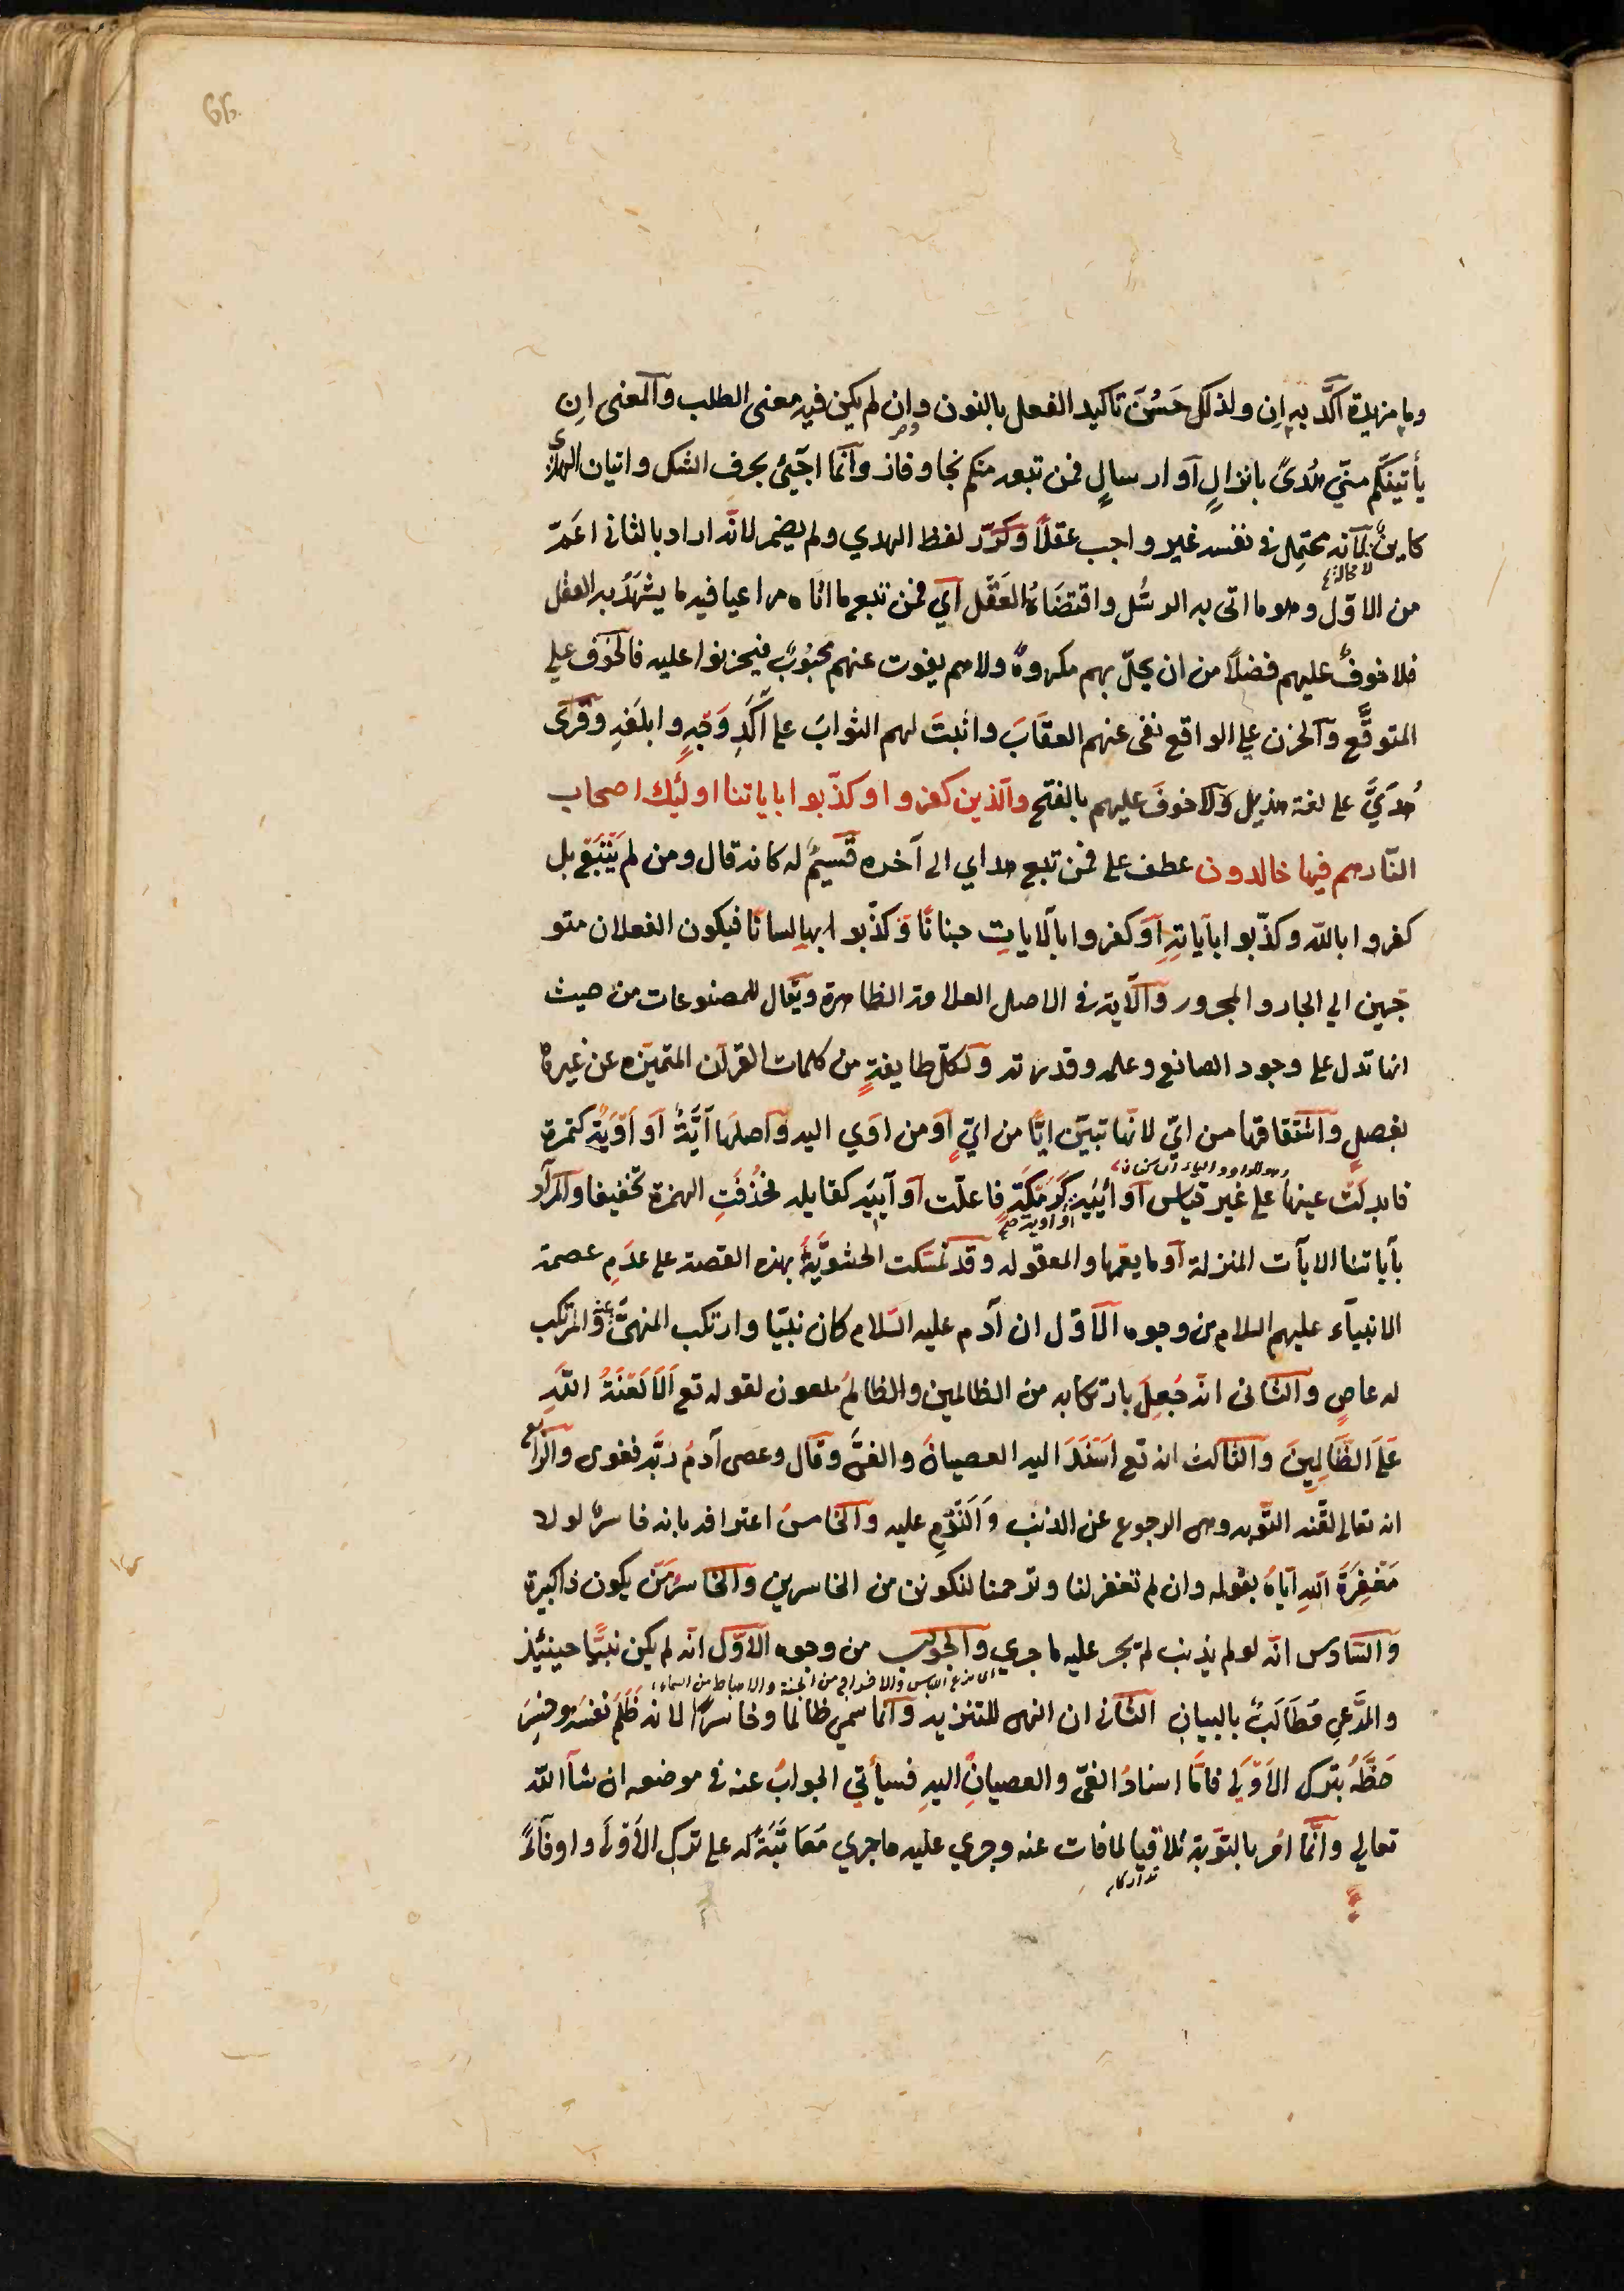 66
وما مزيدة اكّد به اِن ولذلك حَسُنَ تاكيد الفعل بالنون وان لم يكن فيه معنى الطلب والمعنى اِن
يأتينّكم منّي هُدىً بانزالٍ او ارسالٍ فمن تبعه منكم نجا وفاز وانّما اجيئ بحرف الشك واتيان الهدى
كاينٌ لا محالة لانّه محتمل في نفسه غير واجب عقلاً وكرّر لفظ الهدي ولم يضمر لانّه اراد بالثاني اعمّ
من الاوّل وهو ما اتى به الرسُل واقتضَاهُ العَقل اي فمن تبع ما اتاه مراعيا فيه ما يشهَدُ به العقل
فلا خوفٌ عليهم فضلاً من ان يحلّ بهم مكروهٌ ولا هم يفوت عنهم محبُوبٌ فيحزنوا عليه فالخوف على
المتوقَّع والحزن على الواقع نفى عنهم العقَابَ واثبتَ لهم الثوابَ على آكَدِ وَجْهٍ وابلغَهِ وقرئ
هُدَيَّ على لغة هذيل ولا خوفَ عليهم بالفتح والذين كفروا وكذّبوا باياتنا اوليٰك اصحاب
النّار هم فيها خالدون عطف على فمن تبع هداي الى آخره قسيمٌ له كانه قال ومن لم يَتّبع بل
كفروا بالله وكذّبوا بآياتِهِ او كفروا بالايات جنانًا وكذّبوا بها لسانًا فيكون الفعلان متو
جهين الي الجار والمجرور والآية في الاصل العلامة الظاهرة ويقال للمصنوعات من حيث
انها تدل على وجود الصانع وعلمه وقدرته ولكلّ طايفةٍ من كلمات القرآن المتميّزه عن غيرها
بفصلٍ واشتقاقها من ايّ لانّها تبيّن ايًّا من ايٍّ او من اوَي اليه واصلها أَيَّةٌ او أَوَيَةٌ كتمرة
فابدلت عينها على غير قياس او أَيَيَة او أوية كرَمَكَة فاعلّت او آيِيَة كقايلة فحُذفَتِ الهمزة تخفيفا والمراد
بآياتنا الايآت المنزلة او ما يعمّها والمعقوله وقد تمسّكت الحشويَّةُ بهذه القصة على عدَمِ عصمة
الانبيآء عليهم السلام من وجوه الاوّل ان آدم عليه السّلام كان نبيّا وارتكب المنهىَّ عنه والمرتكب
له عاصٍ والثانى انه جُعِلَ بارتكابه من الظالمين والظالمُ ملعون لقوله تع اَلَا لَعْنَةُ اللّهِ
عَلَى الظَّالِمِينَ والثالث انه تع اَسْنَدَ اليه العصيانَ والغىَّ وقال وعصى آدمُ ربَّه فغوى والرّابع
انه تعالى لقّنه التّوبه وهى الرجوع عن الذنب والنّدم عليه والخامسُ اعترافه بانه خاسرٌ لولا
مَغْفِرَةُ اللهِ ايّاهُ بقوله وان لم تغفر لنا وترحمنا لنكونن من الخاسرين والخاسرُ مَن يكون ذا كبيرة
والسّادس انّه لو لم يذنب لم يجر عليه ما جري والجواب من وجوه الاوّل انّه لم يكن نبيًّا حينيٰذ
اى نزع اللباس والاخراج من الجنة والاهباط من السماء
والمدَّعي مُطَالَبٌ بالبيان الثّانى ان النهى للتنزيه وانّما سمى ظالما وخاسرًا لانه ظَلَمَ نفسَهُ وخسِرَ
حَظَّهُ بترك الاوْلَي فامّا اسنادُ الغىّ والعصيانِ اليهِ فسيأتي الجوابُ عنه في موضعه ان شآ الله
تعالي وانّما امُر بالتوبة تلافيا لما فات عنه وجري عليه ما جري مُعَاتَبَةً له على ترك الأولى ووفآءً
تداركا